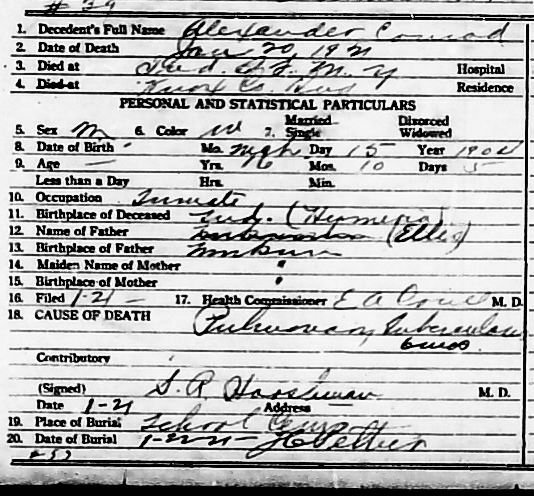 # 39
1. Decedent's Full Name Alexander Conrad
2. Date of Death Jan 20, 1921
3. Died at Ind. S. F. M. Y Hospital
4. Died at Knox Co. Ind Residence
PERSONAL AND STATISTICAL PARTICULARS
5. Sex M 6. Color W 7. Married Single Divorced Widowed
8. Date of Birth Mo. Mch Day 15 Year 1904
9. Age Yrs. 16 Mos. 10 Days 5
Less than a Day Hrs. Min.
10. Occupation Inmate
11. Birthplace of Deceased Ind. (Hymera)
12. Name of Father (Ellis)
13. Birthplace of Father Unknown
14. Maiden Name of Mother "
15. Birthplace of Mother "
16. Filed 1-21- 17. Health Commissioner E A M. D.
18. CAUSE OF DEATH Pulmonary Tuberculosis
6 mos.
Contributory
(Signed) S. R. M. D.
Date 1-21 Address
19. Place of Burial School Cem
20. Date of Burial 1-22-21-